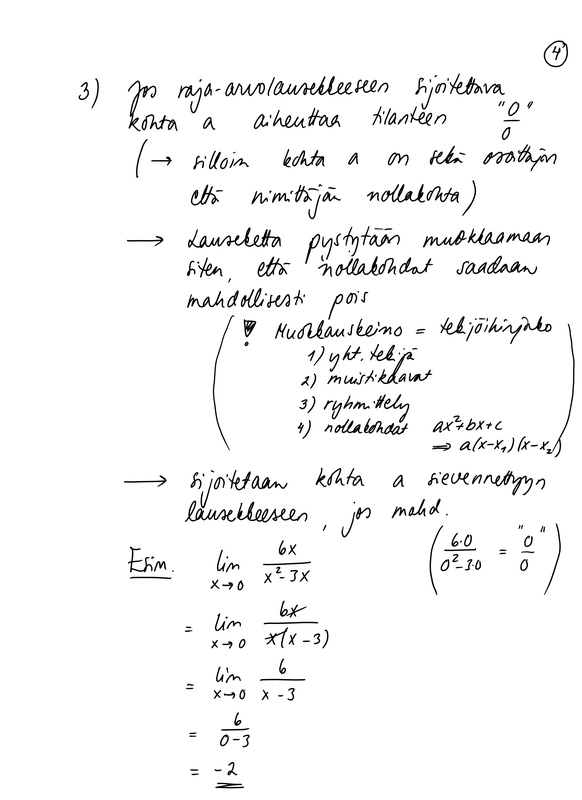 4
3) Jos raja-arvolausekkeeseen sijoitettava
kohta a aiheuttaa tilanteen "0/0"
(→ silloin kohta a on sekä osoittajan
että nimittäjän nollakohta)
→ Lauseketta pystytään muokkaamaan
siten, että nollakohdat saadaan
mahdollisesti pois
( ! Muokkauskeino = tekijöihinjako
1) yht. tekijä
2) muistikaavat
3) ryhmittely
4) nollakohdat ax²+bx+c
⇒ a(x-x₁)(x-x₂) )
→ sijoitetaan kohta a sievennettyyn
lausekkeeseen, jos mahd.
Esim. lim x→0 6x/(x²-3x) (6·0/(0²-3·0) = "0/0")
= lim x→0 6x/(x(x-3))
= lim x→0 6/(x-3)
= 6/(0-3)
= -2